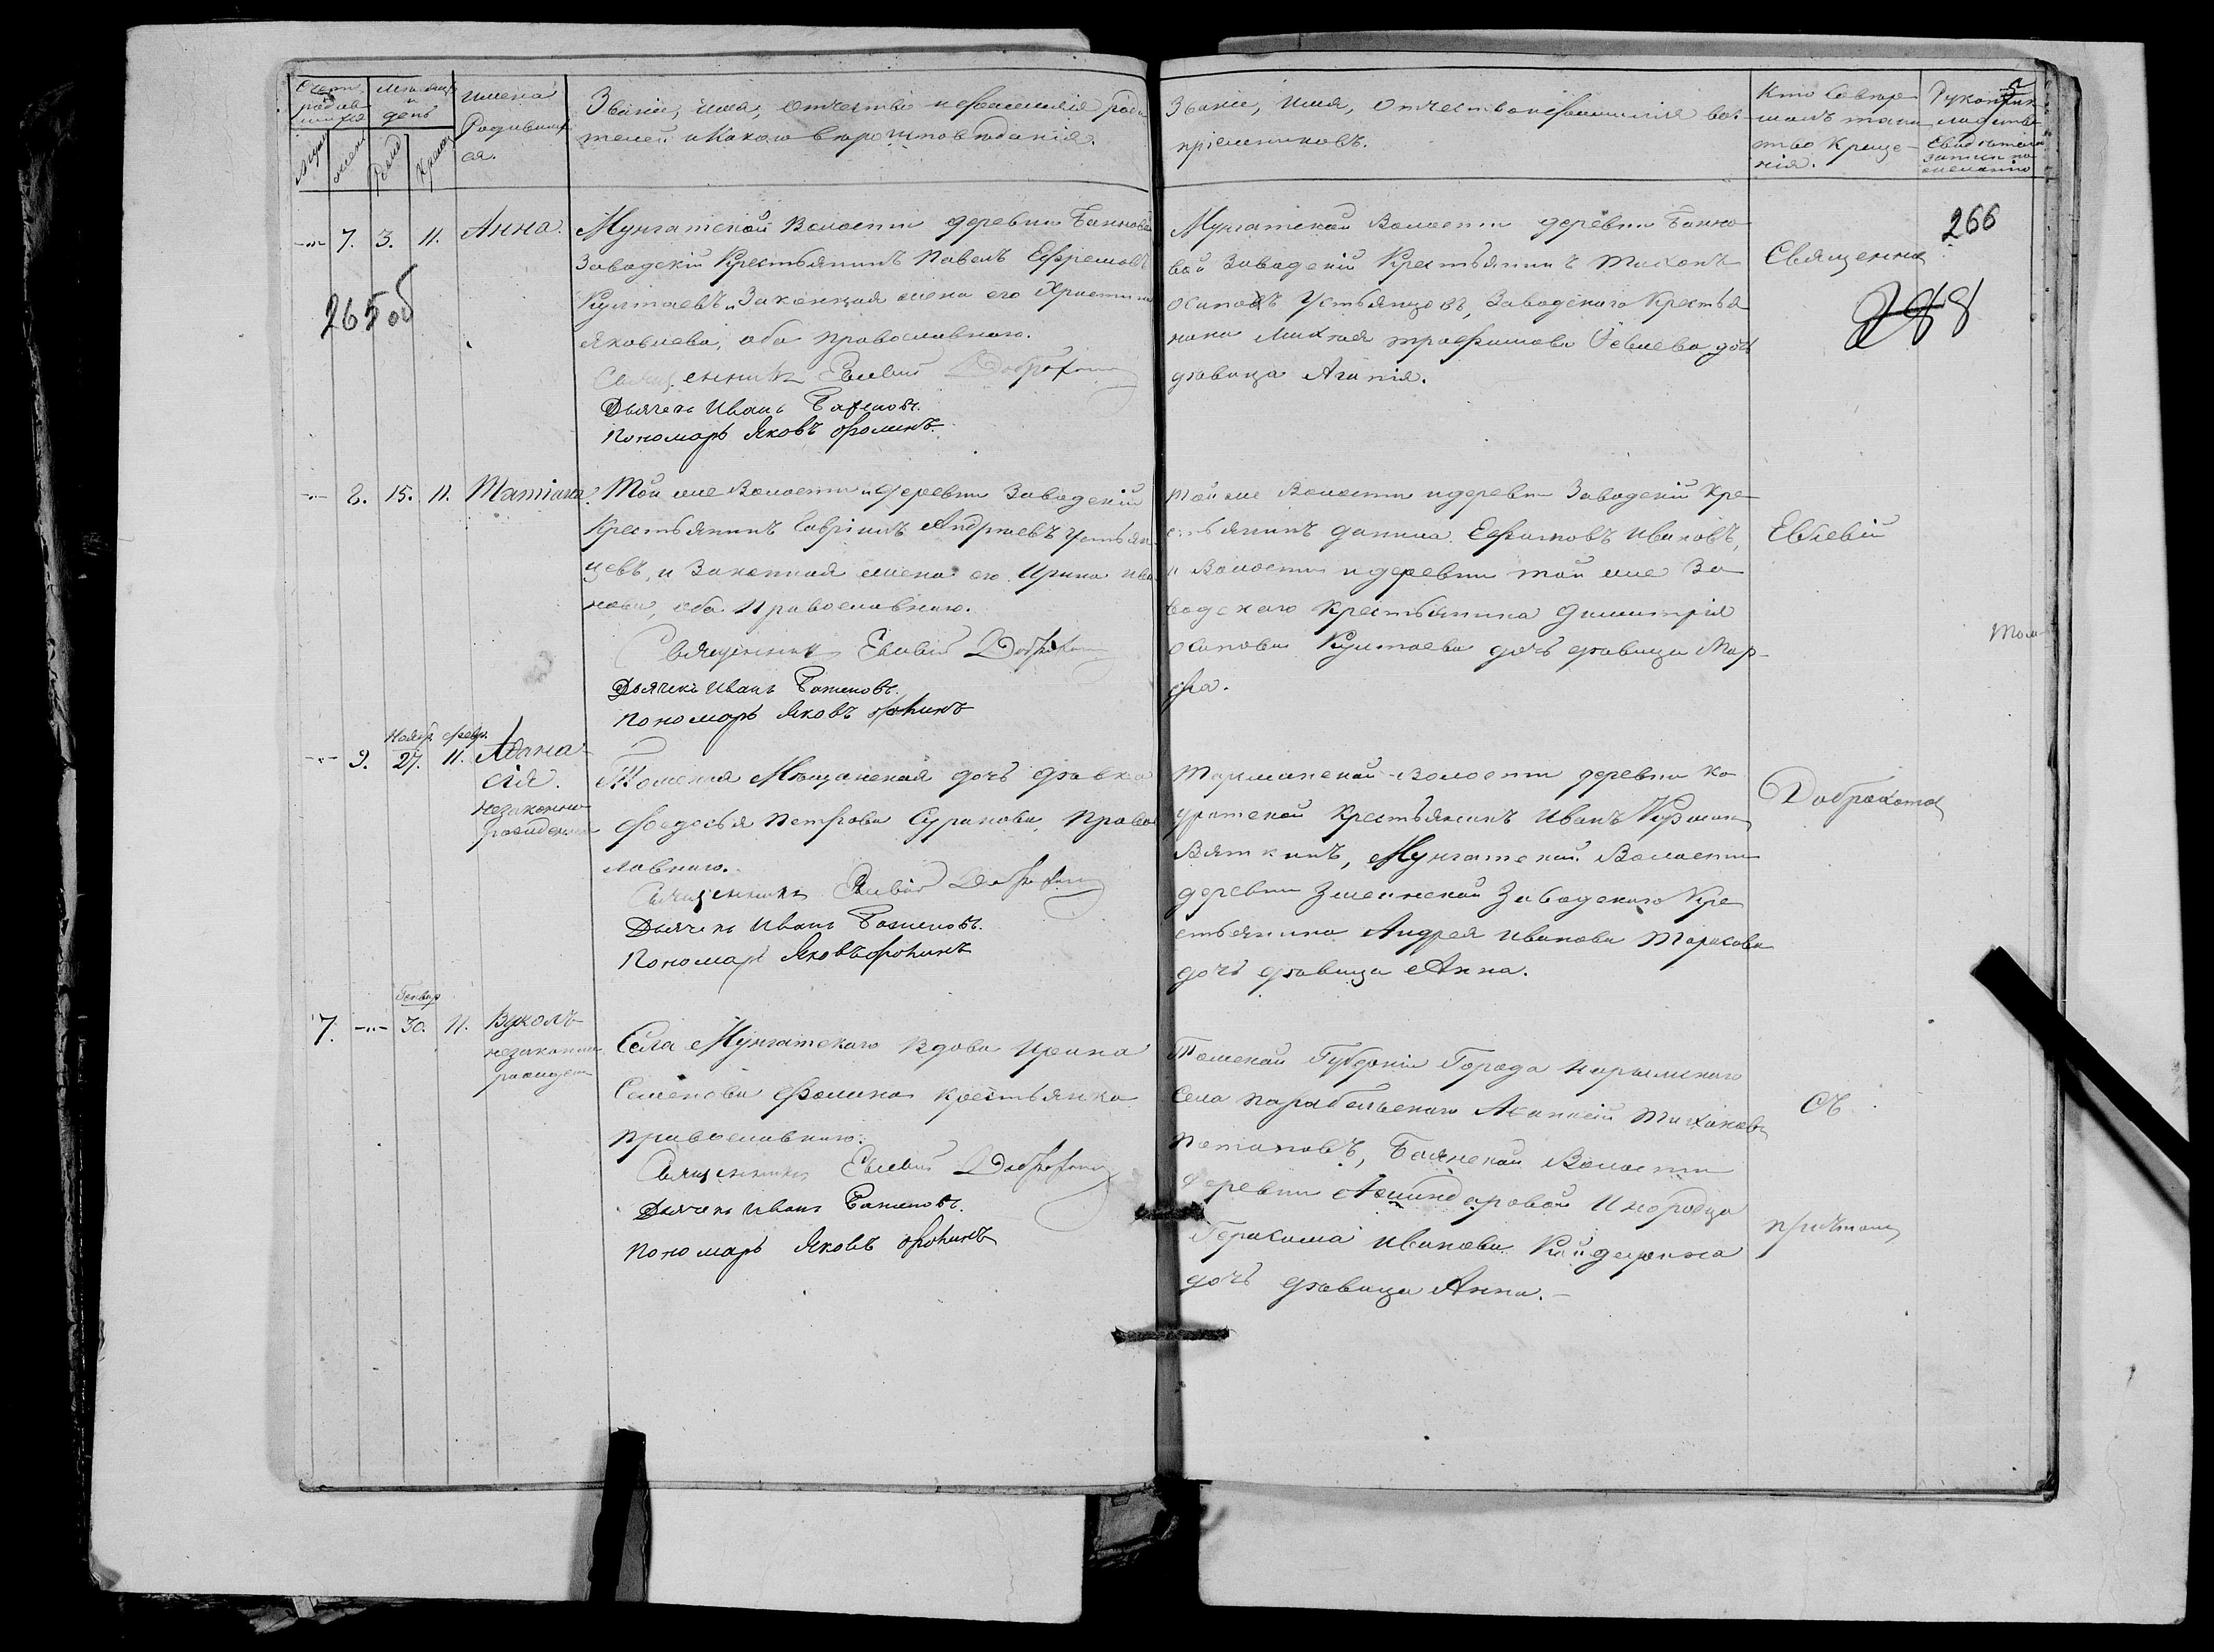 Счетъ родив-шихся
Мѣсяцъ и день
Имена Родивших-ся.
Званіе, имя, отчество и фамилія роди-
телей и Какого вѣроисповѣданія.
Званіе, имя, отчество и фамилія вос-
пріемниковъ.
Кто Совер-
шалъ таин-
ство Креще-
нія.
Рукоприк-
ладство
Свидѣтелей
записи по
желанію
7. 3. 11. Анна.
265 об
Мунгатской Волости деревни Банновой
Заводскій Крестьянинъ Павелъ Ефремовъ
Култаевъ и Законная жена его Христина
Яковлева, оба православнаго.
Священникъ Евлевій Доброхотовъ
Дьячекъ Иванъ Баженовъ.
Пономарь Яковъ Ѳоминъ.
Мунгатской Волости деревни Банно-
вой Заводскій Крестьянинъ Тихонъ
Осиповъ Устьянцовъ, Заводскаго Крестья
нина Трофимова дочь
дѣвица Агапія.
Священникъ
266
288
8. 15. 11. Татіана.
Той же Волости и деревни Заводскій
Крестьянинъ Гавріилъ Андреевъ Устьян-
цевъ, и Законная жена его Ирина Ива
нова, оба Православнаго.
Священникъ Евлевій Доброхотовъ
Дьячекъ Иванъ Баженовъ.
Пономарь Яковъ Ѳоминъ
Той же Волости и деревни Заводскій Кре-
стьянинъ Данила Ефимовъ Ивановъ,
и Волости и деревни той же За
водскаго Крестьянина Димитрія
Осипова Култаева дочь дѣвица Мар-
ѳа.
Евлевій
9. Ноябр. 27. Февр. 11. Аѳана-
сія.
незаконно
рожденная
Томская Мѣщанская дочь дѣвка
Ѳеодосья Петрова Сурикова, Право
славнаго.
Священникъ Евлевій Доброхотовъ
Дьячекъ Иванъ Баженовъ.
Пономарь Яковъ Ѳоминъ
Тарминской Волости деревни Ко
Крестьянинъ Иванъ
Вяткинъ, Мунгатской Волости
деревни Змеинской Заводскаго Кре
стьянина Андрея Иванова Тарасова
дочь дѣвица Анна.
Доброхотовъ
7. Генвар 30. 11. Вуколъ
незаконно
рожден
Села Мунгатскаго Вдова Ирина
Семенова Ѳомина крестьянка
православнаго.
Священникъ Евлевій Доброхотовъ
Дьячекъ Иванъ Баженовъ.
Пономарь Яковъ Ѳоминъ
Томской Губерніи Города Нарымскаго
Села Парабельскаго Тихоновъ
Потаповъ, Баянской Волости
деревни Инородца
Герасима Иванова
дочь дѣвица Анна.
Съ
причтомъ